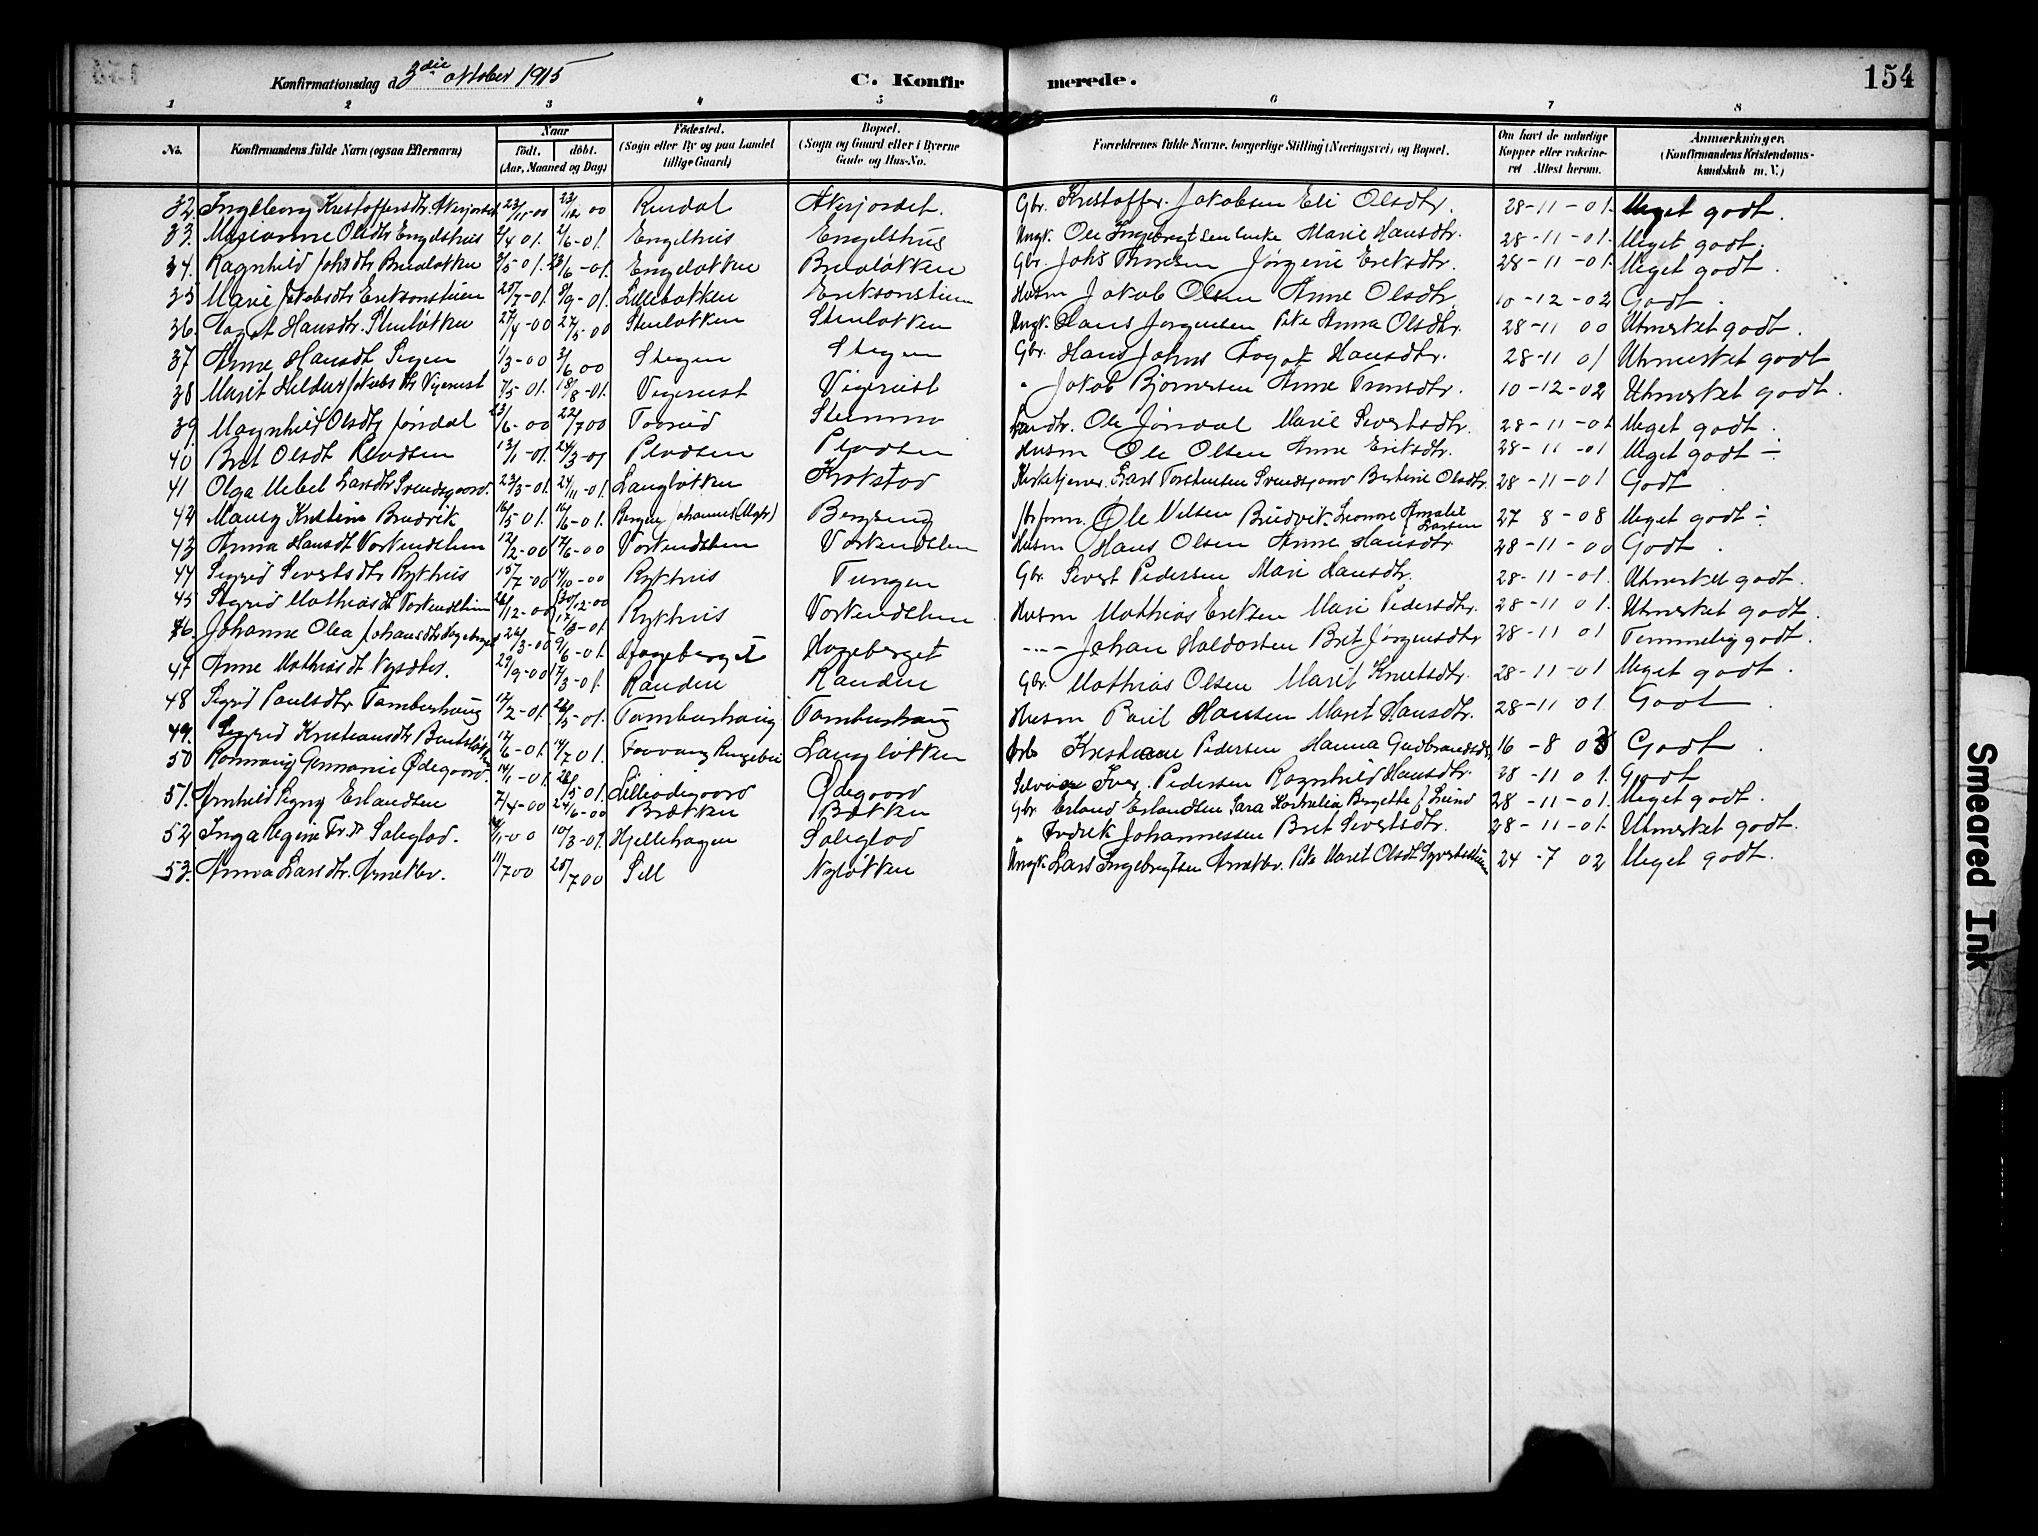 Konfirmationsdag d. 3die oktober 1915 C. Konfir merede. 154
1 2 3 4 5 6 7 8
No. Konfirmandens fulde Navn (ogsaa Efternavn) Naar födt. döbt. (Aar, Maaned og Dag) Födested. (Sogn eller By og paa Landet tillige Gaard) Bopæl. (Sogn og Gaard eller i Byerne Gade og Hus-No. Forældrenes fulde Navne, borgerlige Stilling (Næringsvei) og Bopæl. Om havt de naturlige Kopper eller vakcineret Attest herom. Anmærkninger. (Konfirmandens Kristendomskundskab m. V.)
32. Ingeborg Kristoffersdtr. Akerjordet 23/11-00 23/12 00 Rindal Akerjordet. Gbr. Kristoffer Jakobsen Eli Olsdtr. 28-11-01. Meget godt.
33. Marianne Olsdtr Engelshus 2/4 01. 2/6-01. Engelhus Engelshus Ungk. Ole Ingebrigtsen Marie Hansdtr. 28-11-01. Meget godt.
34. Ragnhild Johsdtr Bredaløkken /5-01. 23/6-01. Bredaløkken Gbr. Johs Thoresen Jørgine Eriksdtr. 28-11-01. Meget godt.
35 Marie Jakobsdtr Eriksonstuen 25/7-01. 8/9-01. Lillebakken Eriksonstuen Husm Jakob Olsen Anne Olsdtr. 10-12-02 Godt.
36 Aagot Hansdtr. Stenløkken 27/4-00 27/5-00 Stenløkken Stenløkken Ungk. Hans Jørgensen Pike Anna Olsdtr. 28-11 00 Utmerket godt.
37 Anne Hansdt Stegen 1/3-00 3/6 00 Stegen Stegen Gbr. Hans Johns Aagot Hansdtr. 28-11 01 Utmerket godt
38 Marit Heldur Jakobsdtr Vigerust 7/5-01. 18/8-01. Vigerust Vigerust " Jakob Bjørnersen Anne Tronsdtr. 10-12-02 Utmerket godt.
39. Magnhild Olsdtr Jøndal 23/6-00 22/7 00 Toerud Stemmo Ole Jøndal Marie Sivertsdtr. 28-11-01 Meget godt.
40 Brit Olsdt Pladsen 13/1-01. 24/3-01 Pladsen Pladsen Husm Ole Olsen Anne Eriksdtr. 28-11-01 Meget godt ÷
41 Olga Mebel Larsdtr Svendsgaard. 23/3-01. 24/11-01. Langløkken Krokstad Kirketjener. Lars Torstensen Svendsgaard Bertine Olsdtr. 28-11-01 Godt
42 Mansy Kristine Bredvik 16/5 01. 16/6-01. Bergen Johannes (Mgh) Bergseng Ole Nelsen Bredvik Leonore Amalie Larsen 27 8-08 Meget godt ÷
43 Anna Hansdt Vorkendshem 12/2-00 17/6-00 Vorkendshem Vorkendshem Husm Hans Olsen Anne Hansdtr 28-11-00 Godt.
44 Sigrid Sivertsdtr Rykhus 15/7-00 14/10-00 Rykhus Tungen Gbr. Sivert Pedersen Mari Hansdtr. 28-11-01. Utmerket godt.
45 Sigrid Mathiasdt Vorkendshem 26/12-00 Rykhus Vorkendshem Husm Mathias Eriksen Mari Pedersdtr. 28-11 01. Utmerket godt.
46. Johanne Olea Johansdtr Hageberget 26/3-00 9/6-01. Hageberget Hageberget ---- Johan Haldorsen Brit Jørgensdtr 28-11 01 Temmelig godt.
47 Anne Mathiasdt 29/9-00 17/3-01. Randen Randen Gbr. Mathias Olsen Marit Knutsdtr. 28-11-01 Meget godt.
48 Sigrid Paulsdtr Tamburhaug 12/2-01. 26/5-01. Tamburhaug Tamburhaug Husm Paul Hansen Marit Hansdtr. 28-11 01. Godt.
49. Sigrid Kristiansdtr 12/6-01. 14/7 01. Faavang Ringebu Langløkken Arb Kristiane Pedersen Hanna Gudbrandsdtr 16-8 03 Godt.
50 Ronnaug Germanie Ødegaard. 14/1-01. 26/5 01. Lilleødegaard Ødegaard Selveier Iver Pedersen Ragnhild Hansdtr. 28-11 01. Godt
51. Arnhild Signy Erlandsen 7/4-00 24/6-00 Brækken Brækken Gbr Erland Erlandsen Sara Kornelia Birgitte f Lund 28-11-01. Meget godt.
52 Inga Regine Fr.dt Saleglad. 11-00 10/3-01. Hjellehagen Saleglad " Fredrik Johannessen Brit Sivertsdtr. 28-11-01. Utmerket godt.
53. Anna Larsdtr. Arnekler. 11/7 00 25/7 00 Sell Nyløkken Ungk. Lars Ingebrigtsen Arnekler. Pike Marit Olsdt 24-7 02 Meget godt.
Smeared Ink